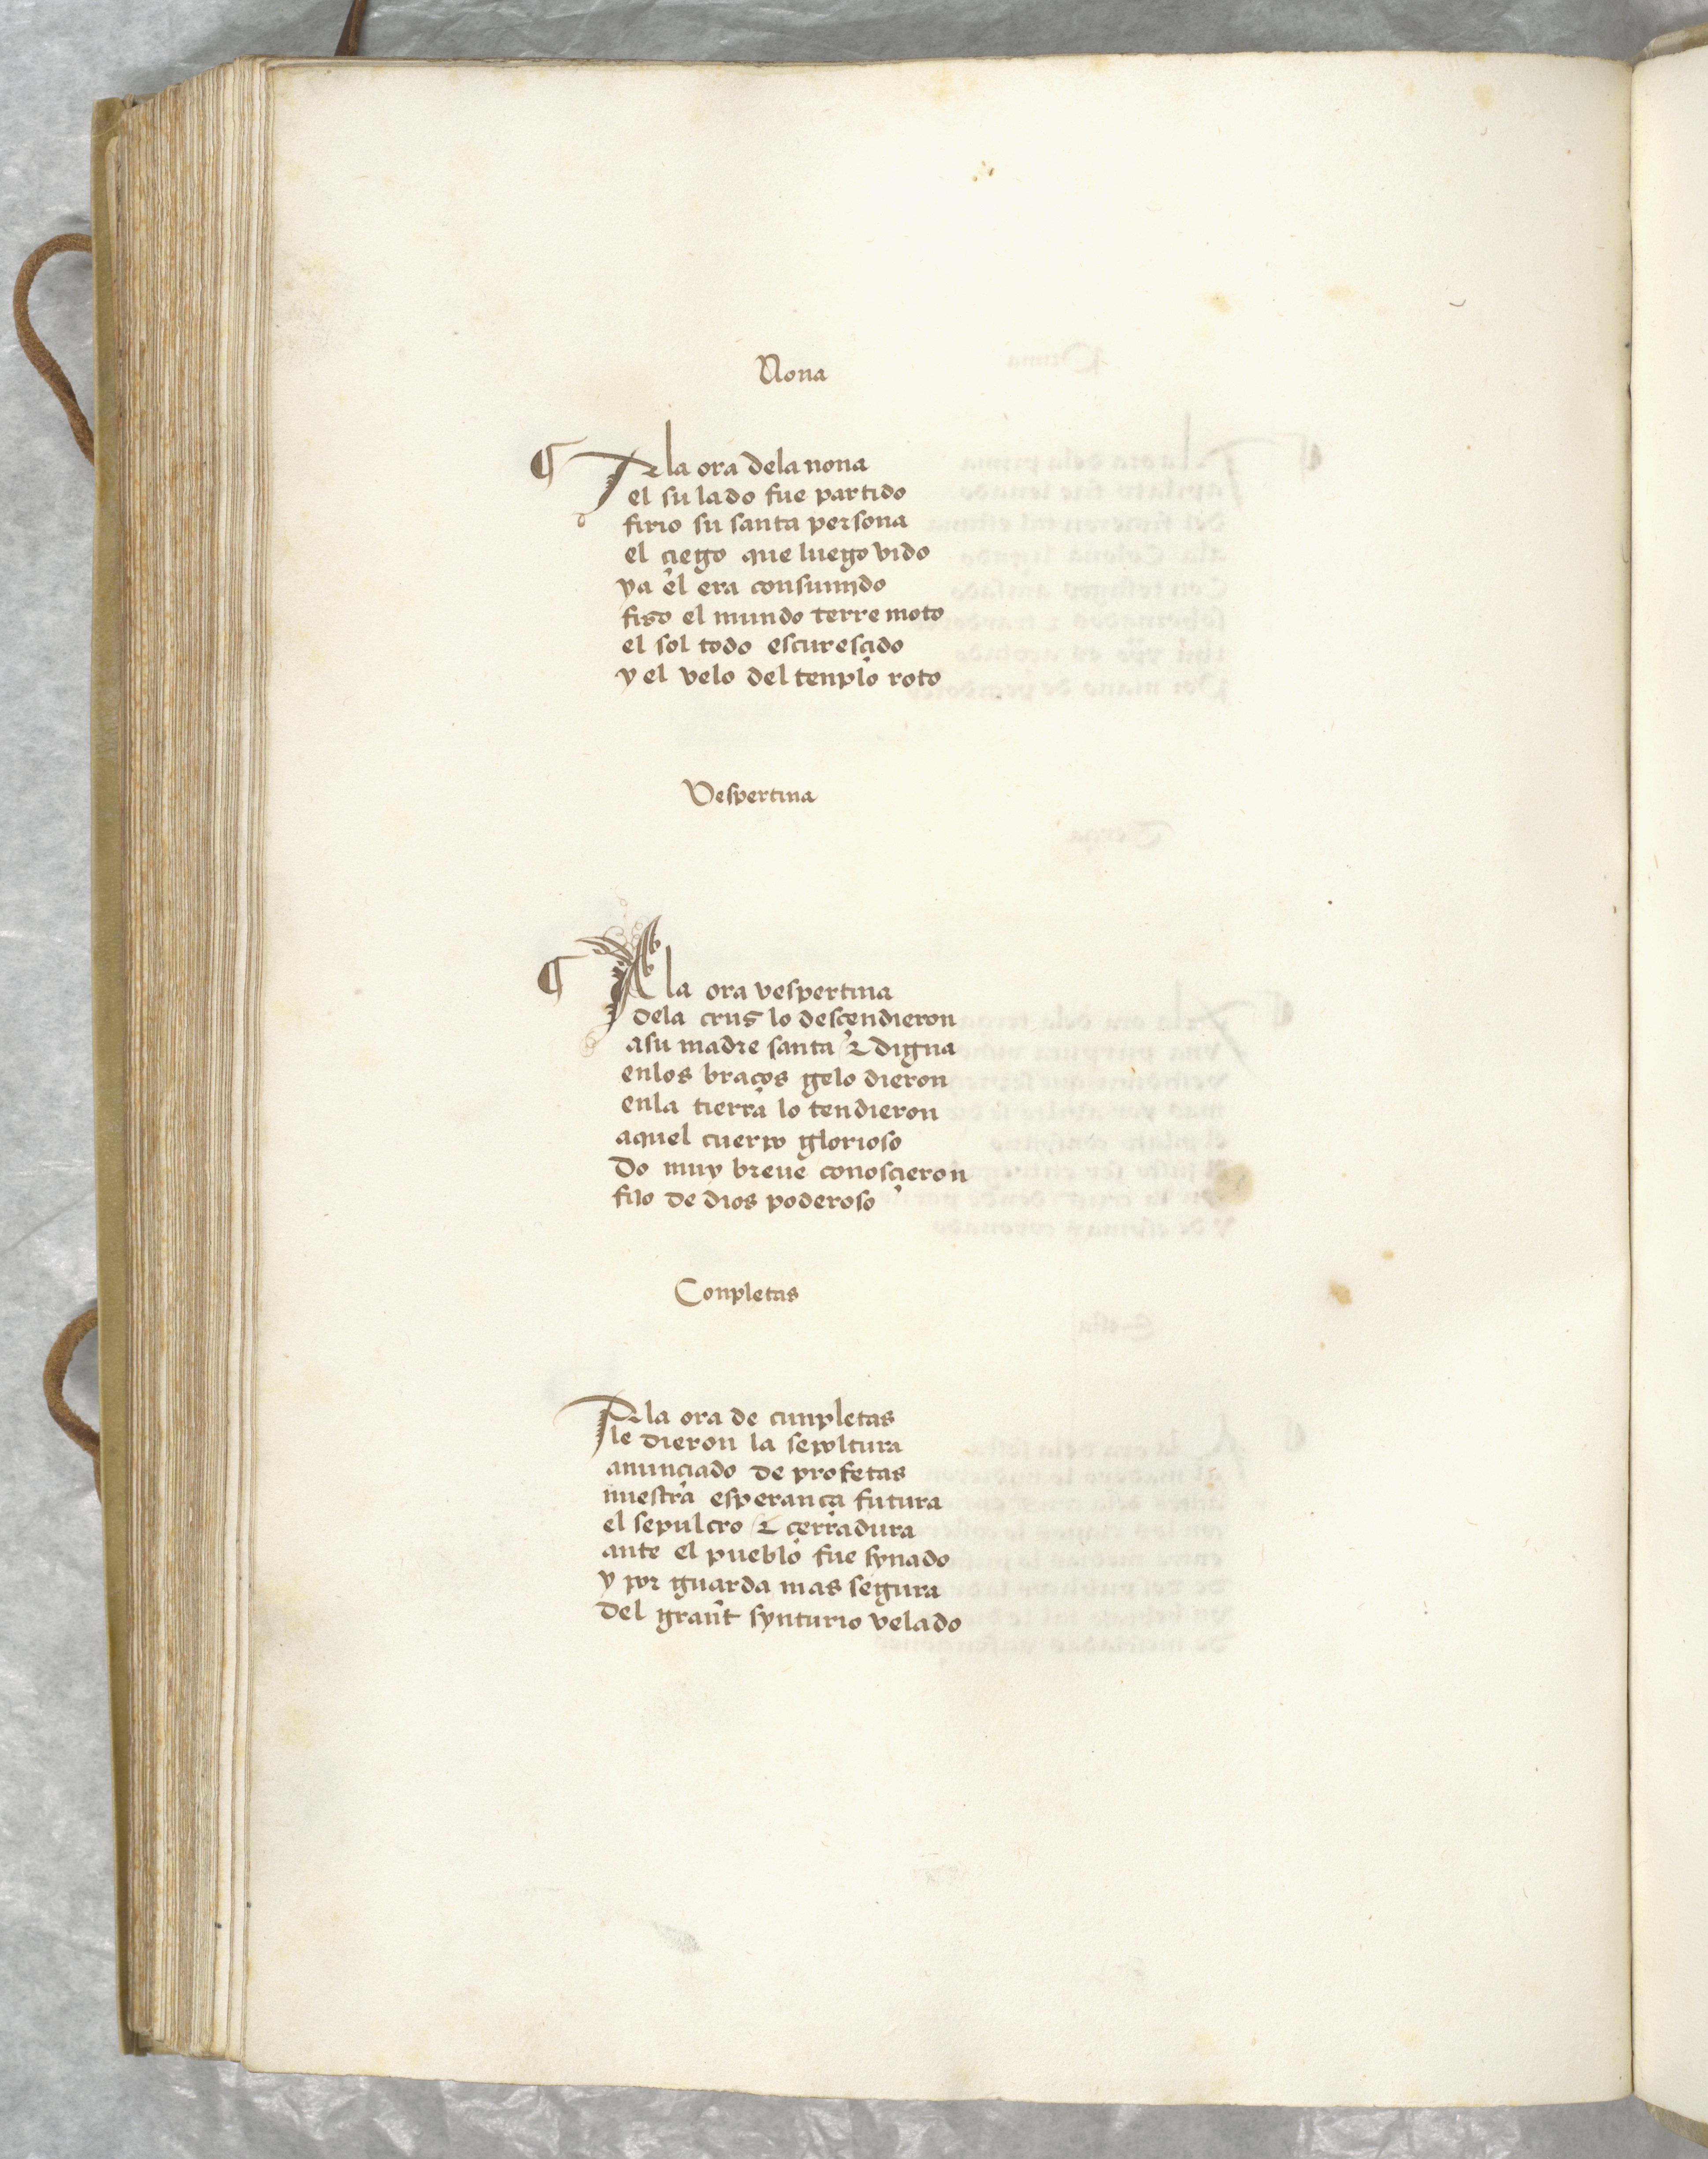 Nona
¶ Ala ora dela nona
el su lado fue partido
firio su santa persona
el ciego que luego vido
ya el era consumido
fizo el mundo terremoto
el sol todo escurescido
y el velo del tenplo roto
Vespertina
¶ Ala ora vespertina
dela crus lo desçendieron
asu madre santa & digna
enlos braços gelo dieron
enla tierra lo tendieron
aquel cuerpo glorioso
do muy breue conosçieron
fijo de dios poderoso
Conpletas
Ala ora de cunpletas
le dieron la sepoltura
anunçiado de profetas
nuestra esperança futura
el sepulcro & çerradura
ante el pueblo fue synado
y por guarda mas segura
del grant synturio velado